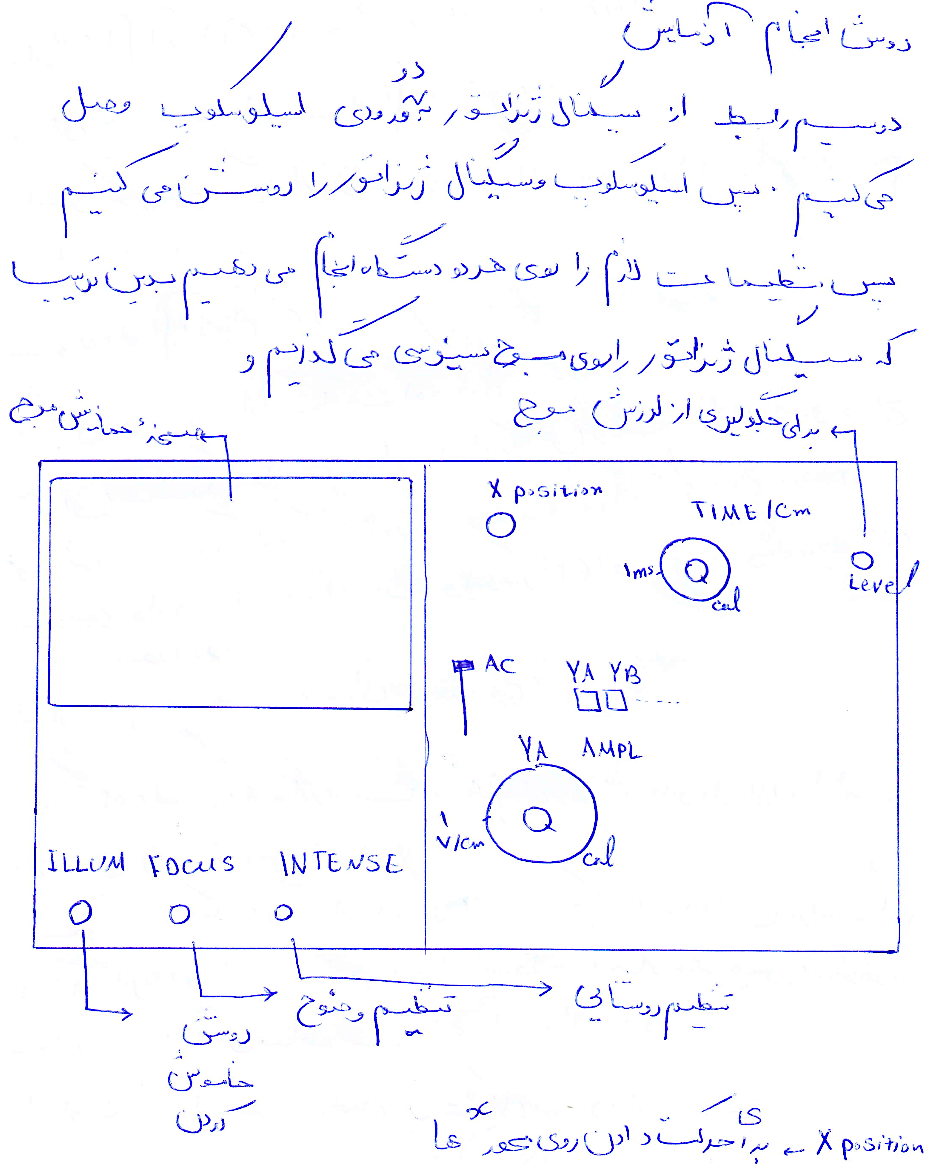 روش انجام آزمایش
دو سیم رابط از سیگنال ژنراتور به دو ورودی اسیلوسکوپ وصل
می کنیم . پس اسیلوسکوپ و سیگنال ژنراتور را روشن می کنیم
پس تنظیمات لازم را روی هر دو دستگاه انجام می دهیم بدین ترتیب
که سیگنال ژنراتور را روی موج سینوسی می گذاریم و
برای جلوگیری از لرزش موج
صفحهٔ نمایش موج
X position
TIME/Cm
1ms
cal
Level
AC
YA YB
YA AMPL
1
V/cm
cal
ILLUM FOCUS INTENSE
تنظیم روشنایی
تنظیم وضوح
روشن
خاموش
کردن
X position ← برای حرکت دادن روی محور x ها